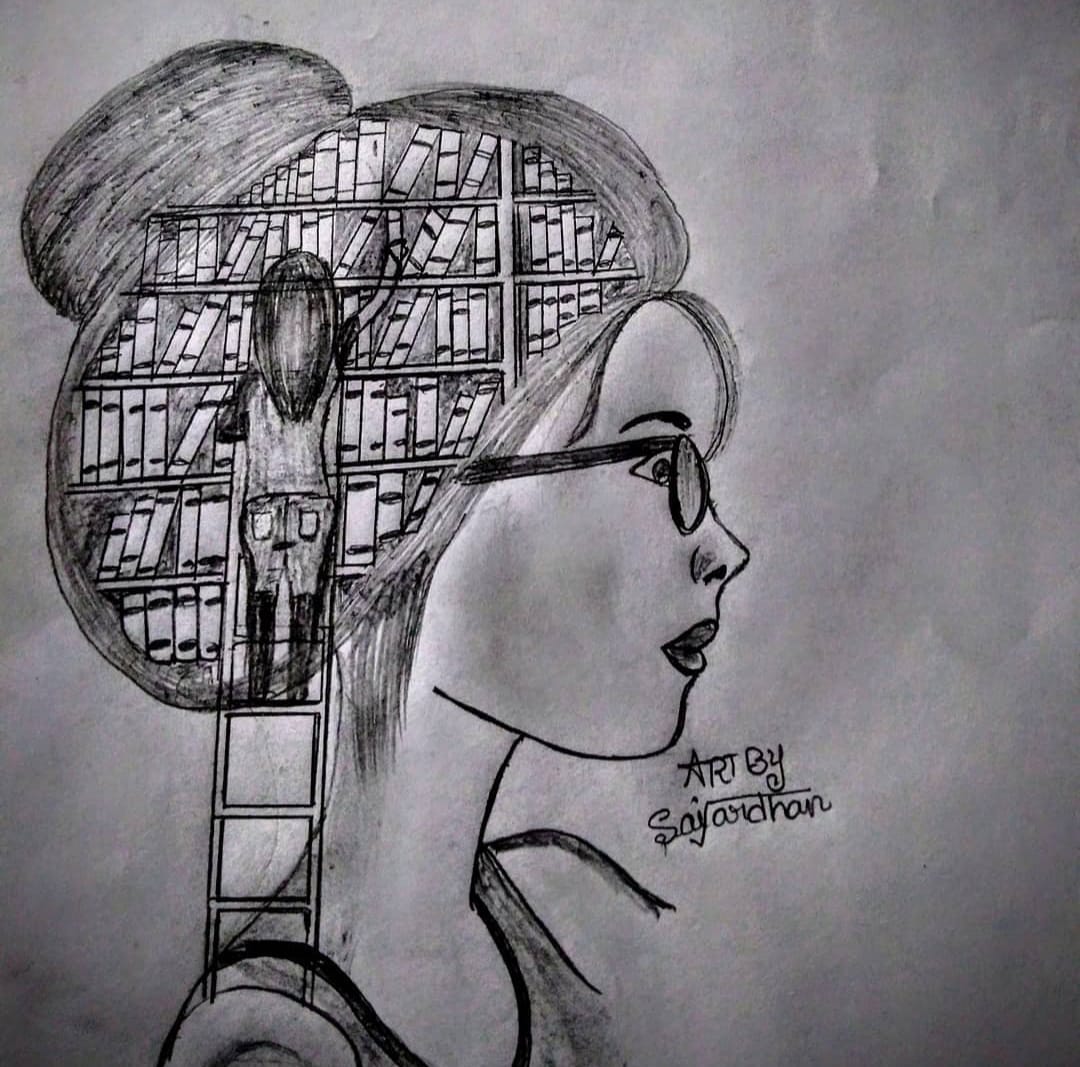 ART By
Sajardhan